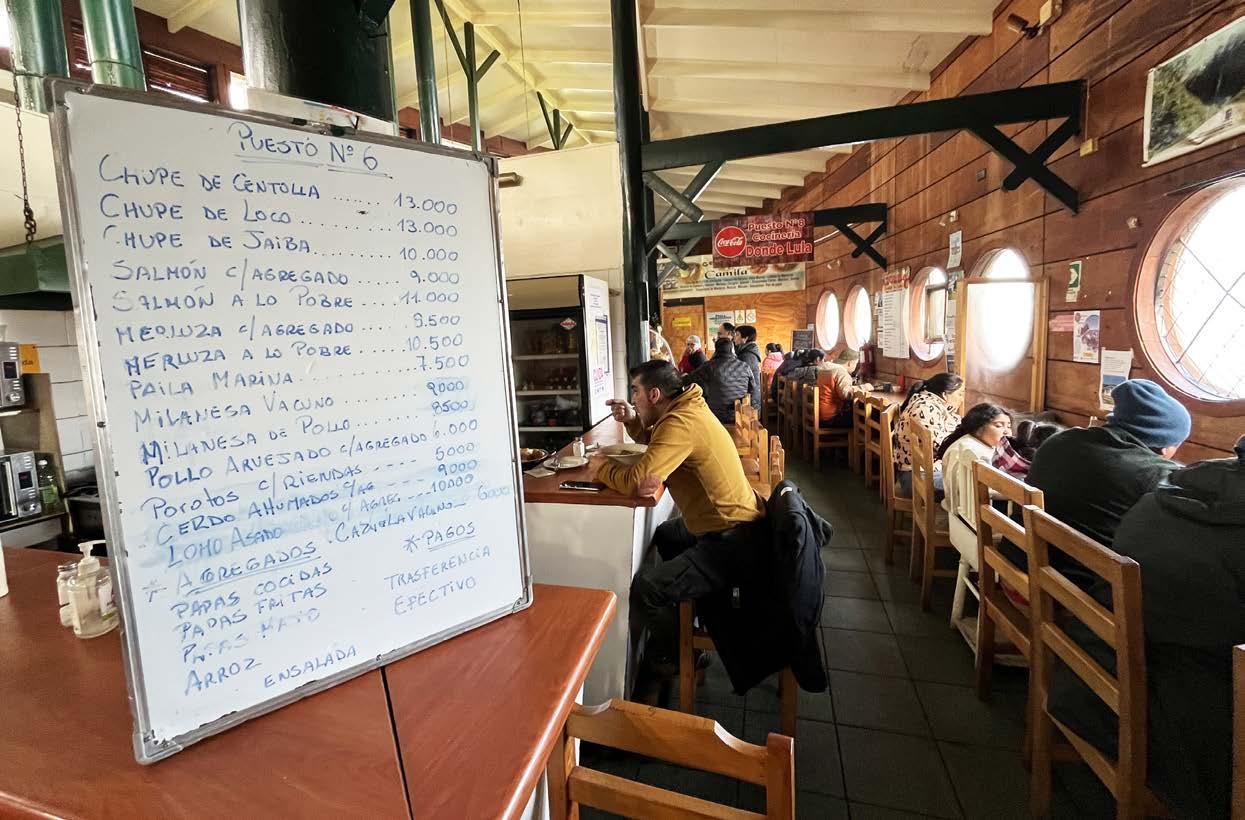 PUESTO Nº 6
CHUPE DE CENTOLLA ....... 13.000
CHUPE DE LOCO .......... 13.000
CHUPE DE JAIBA ......... 10.000
SALMÓN C/AGREGADO ..... 9.000
SALMÓN A LO POBRE .... 11.000
MERLUZA C/AGREGADO .... 8.500
MERLUZA A LO POBRE ... 10.500
PAILA MARINA .......... 7.500
MILANESA VACUNO ....... 9000
MILANESA DE POLLO ...... 8500
POLLO ARVEJADO C/AGREGADO 6.000
POROTOS C/RIENDAS ---- 5000
CERDO AHUMADOS C/AG ---- 9000
LOMO ASADO C/AGREG ---10000
CAZUELA VACUNO_ 6000
* AGREGADOS
PAPAS COCIDAS
PAPAS FRITAS
MAYO
ARROZ ENSALADA
*PAGOS
TRASFERENCIA
EFECTIVO
Coca-Cola
Puesto Nº8
Cocineria
Donde Lula
Camila